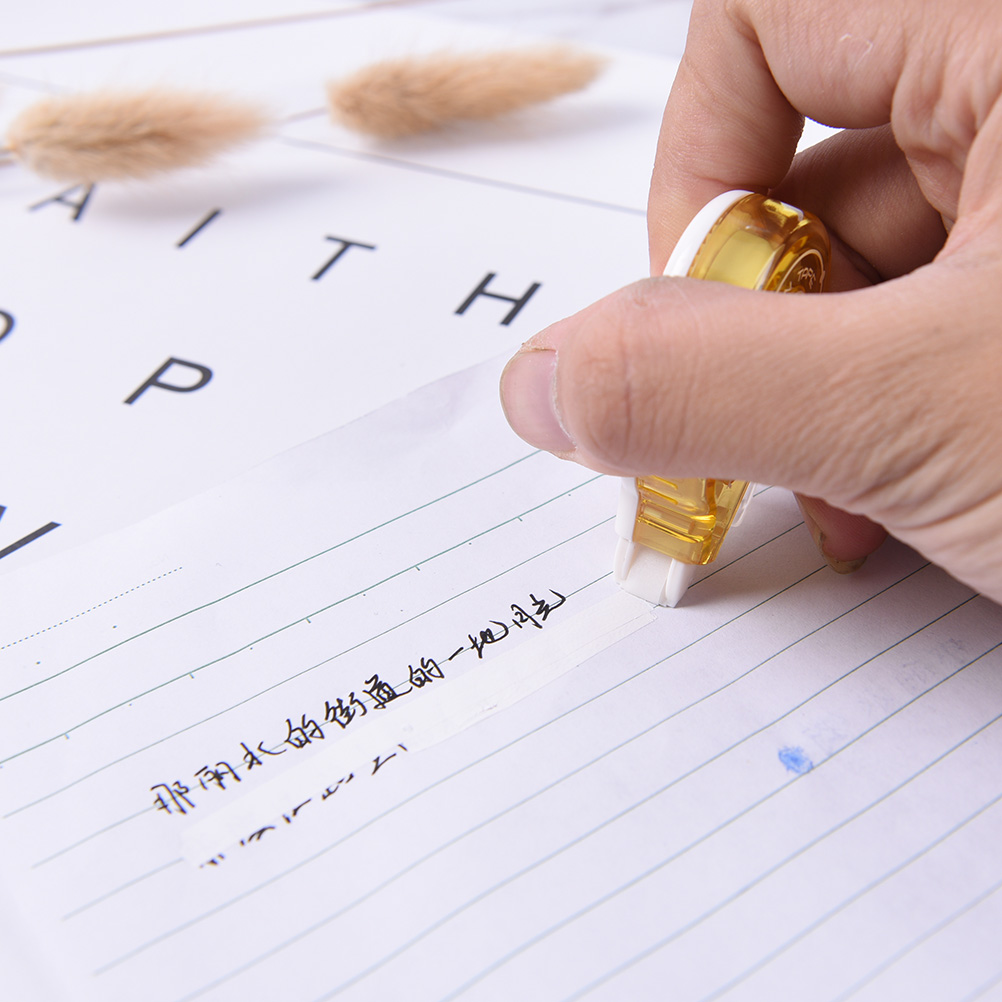 AITH
OP
那雨水的街道的一地月光